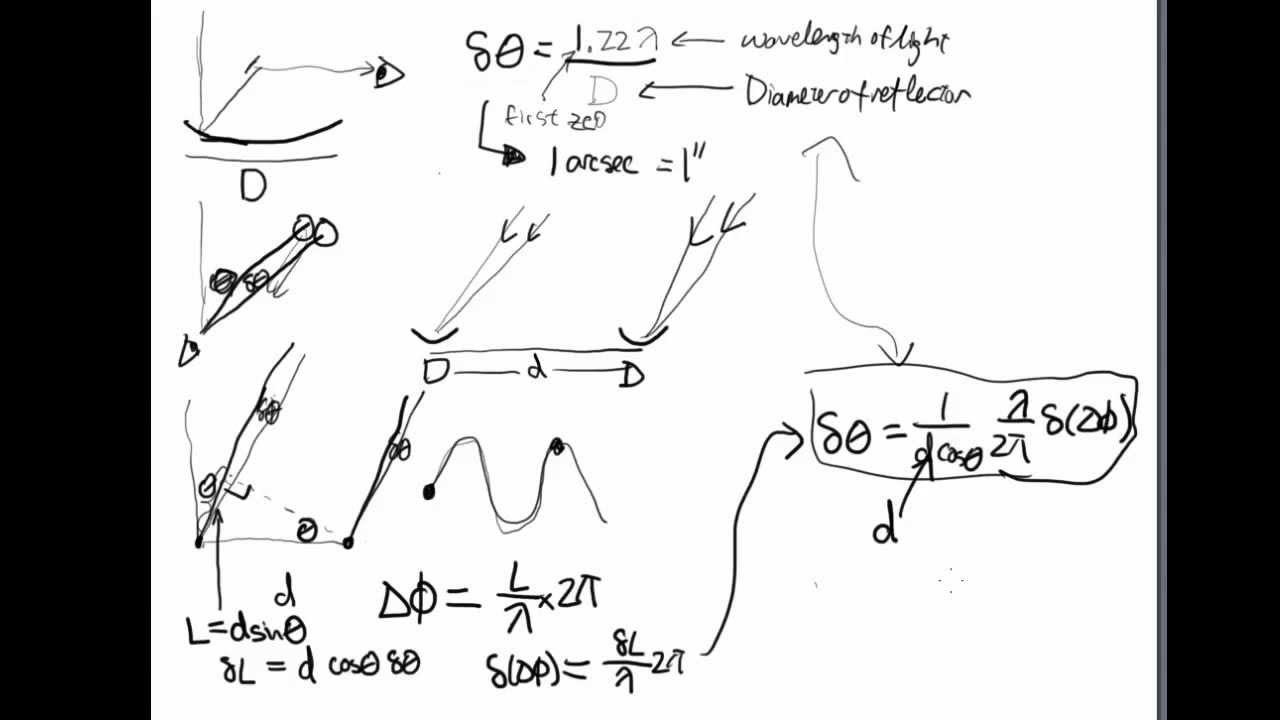 δθ = 1.22λ ← wavelength of light
D ← Diameter of reflector
first zero
1 arcsec = 1"
D
D
θ δθ
D
D d D
δθ
θ
δθ
θ
d
L = d sinθ
δL = d cosθ δθ
Δϕ = L/λ × 2π
δ(Δϕ) = δL/λ 2π
δθ = 1/(d cosθ) λ/2π δ(Δϕ)
d